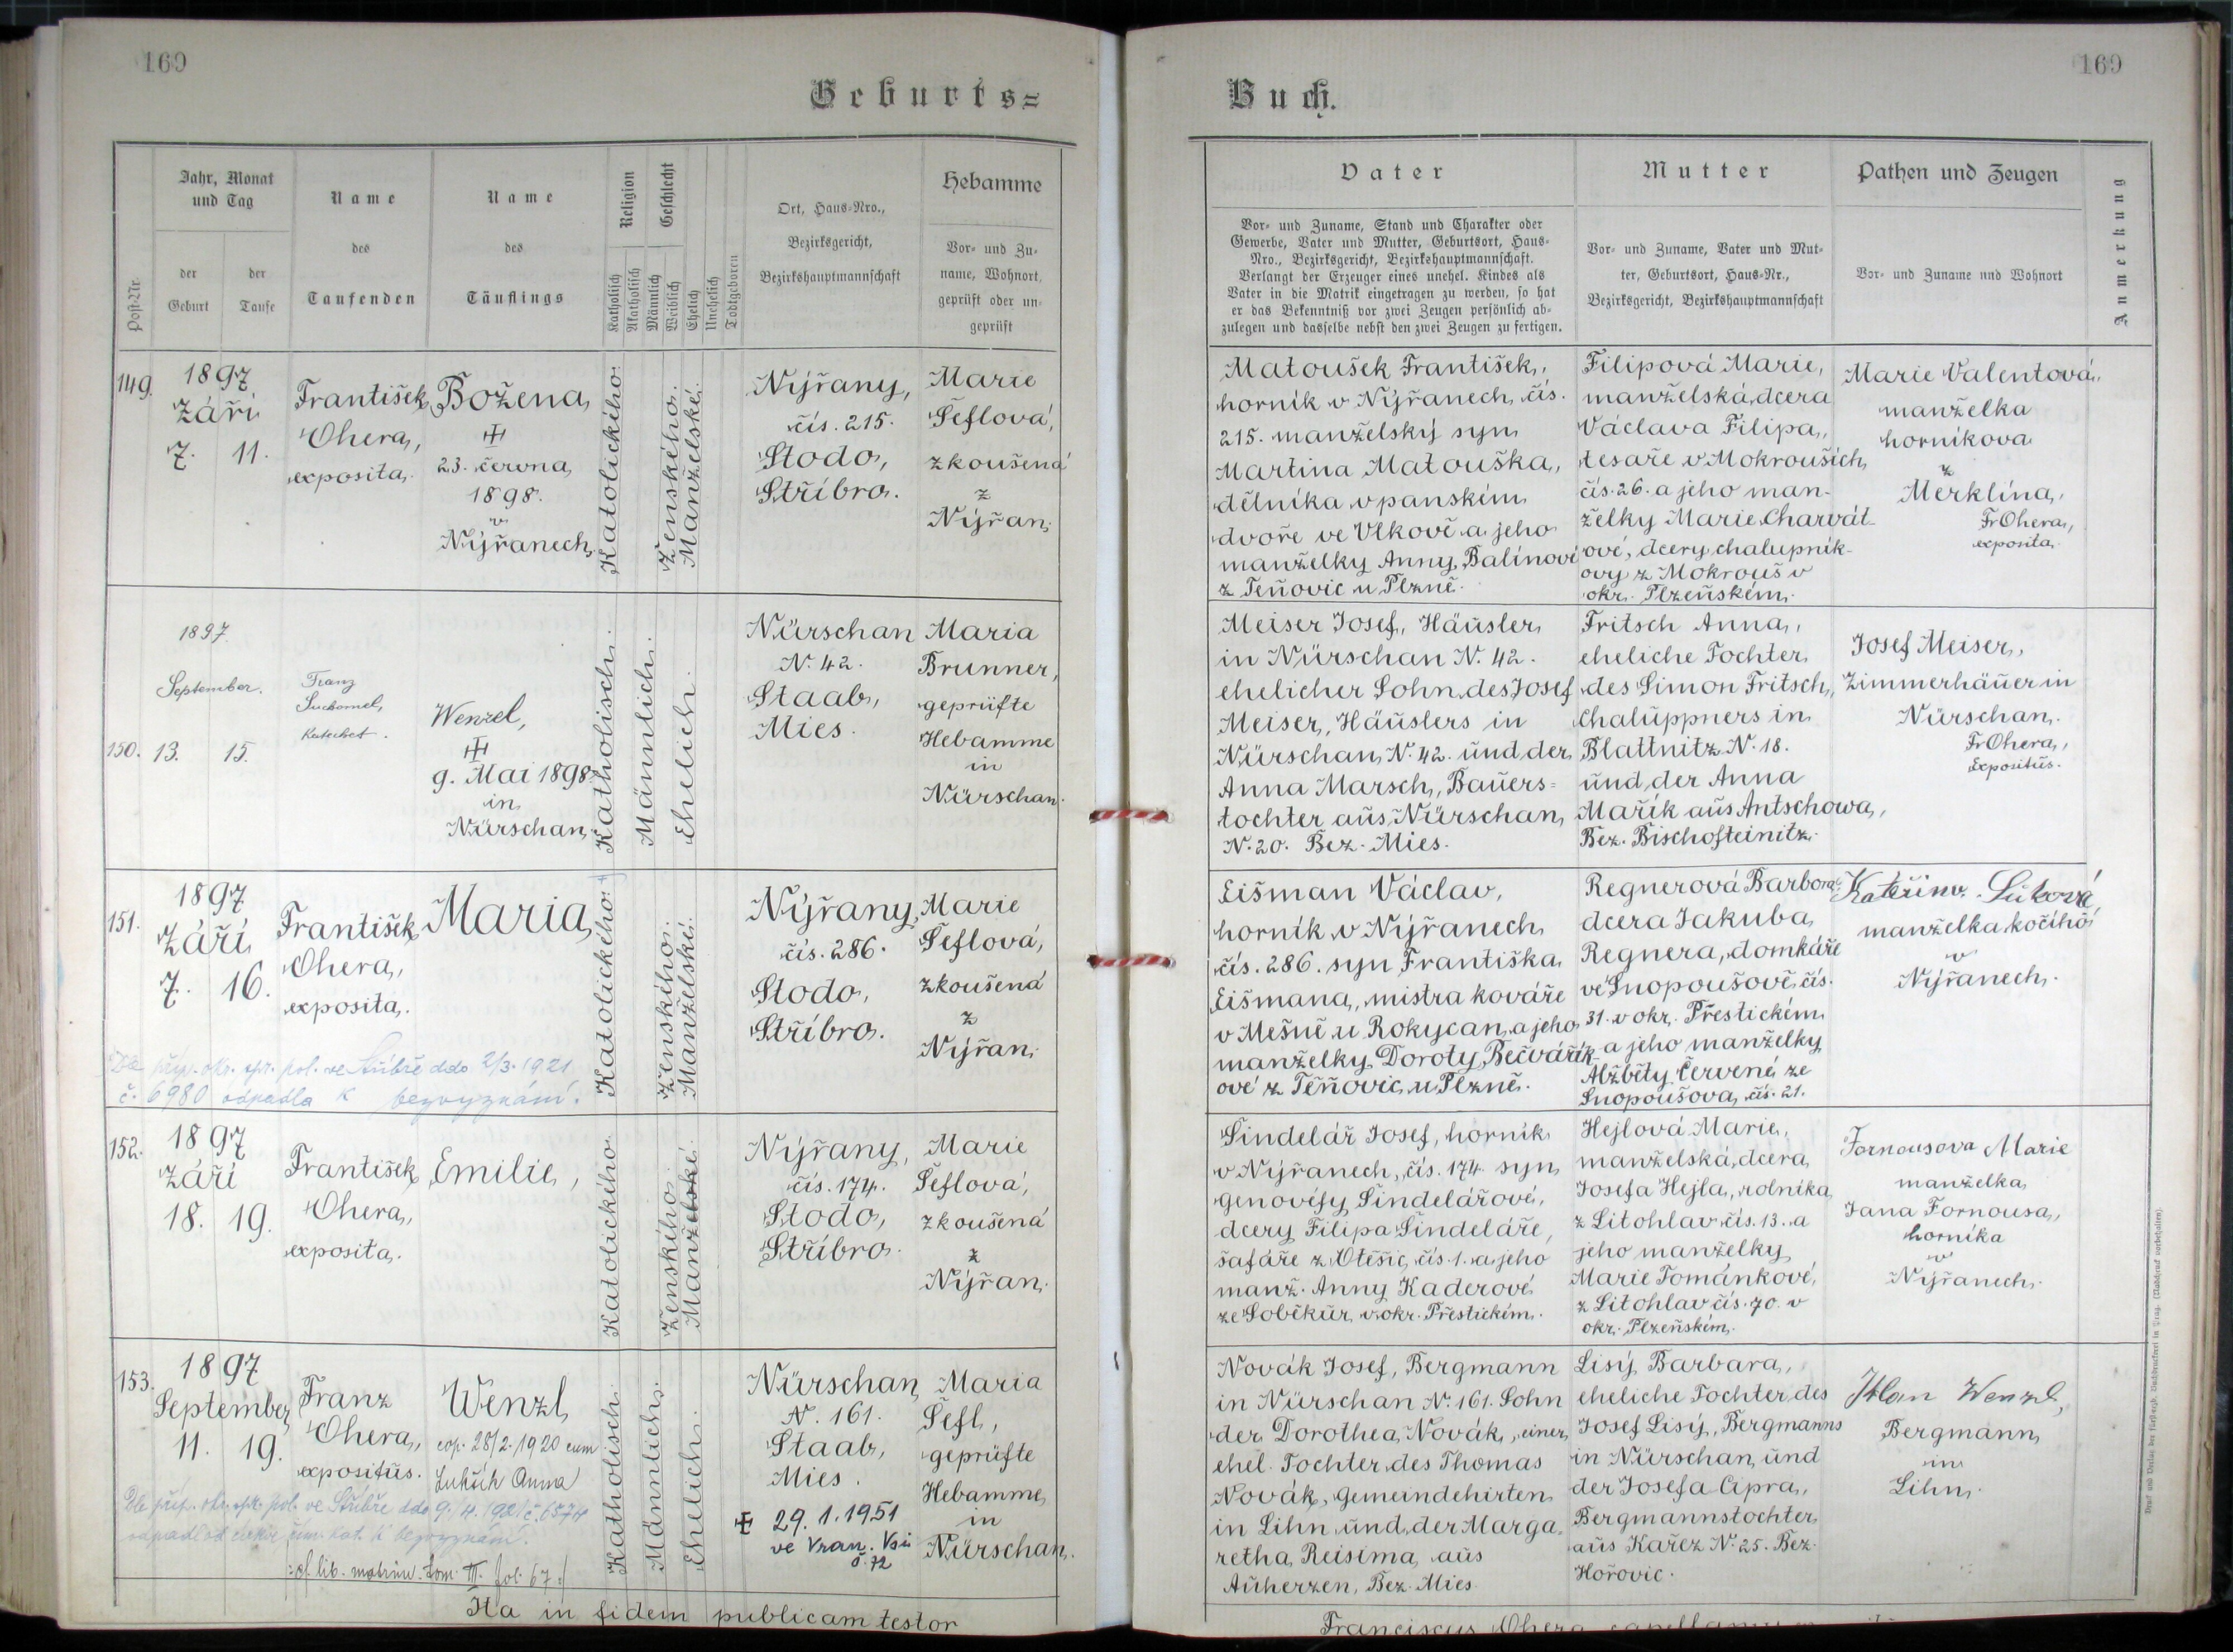 169
169
Geburts=
Buch.
Post-Nr.
Jahr, Monat
und Tag
der
Geburt
der
Taufe
Name
des
Taufenden
Name
des
Täuflings
Religion
Katholisch
Akatholisch
Geschlecht
Männlich
Weiblich
Ehelich
Unehelich
Todtgeboren
Ort, Haus-Nro.,
Bezirksgericht,
Bezirkshauptmannschaft
Hebamme
Vor- und Zu-
name, Wohnort,
geprüft oder un-
geprüft
Vater
Vor- und Zuname, Stand und Charakter oder
Gewerbe, Vater und Mutter, Geburtsort, Haus-
Nro., Bezirksgericht, Bezirkshauptmannschaft.
Verlangt der Erzeuger eines unehel. Kindes als
Vater in die Matrik eingetragen zu werden, so hat
er das Bekenntniß vor zwei Zeugen persönlich ab-
zulegen und dasselbe nebst den zwei Zeugen zu fertigen.
Mutter
Vor- und Zuname, Vater und Mut-
ter, Geburtsort, Haus-Nr.,
Bezirksgericht, Bezirkshauptmannschaft
Pathen und Zeugen
Vor- und Zuname und Wohnort
Anmerkung
149.
1897
Září
7. 11.
František
Ohera,
exposita.
Božena
23. června
1898.
v
Nýřanech.
Katolického.
Ženského.
Manželské.
Nýřany,
čís. 215.
Stodo,
Stříbro.
Marie
Šeflová,
zkoušená
z
Nýřan.
Matoušek František,
horník v Nýřanech, čís.
215. manželský syn
Martina Matouška,
dělníka v panském
dvoře ve Vlkově a jeho
manželky Anny Balínové
z Těňovic u Plzně.
Filipová Marie,
manželská dcera
Václava Filipa,
tesaře v Mokrouších
čís. 26. a jeho man-
želky Marie Charvát-
ové, dcery chalupník-
ovy z Mokrouš v
okr. Plzeňském.
Marie Valentová,
manželka
horníkova
z
Merklína,
Fr Ohera,
exposita.
150.
1897.
September.
13. 15.
Franz
Suchomel,
Katechet.
Wenzel,
9. Mai 1898
in
Nürschan.
Katholisch.
Männlich.
Ehelich.
Nürschan
N. 42.
Staab,
Mies.
Maria
Brunner,
geprüfte
Hebamme
in
Nürschan.
Meiser Josef, Häusler
in Nürschan N. 42.
ehelicher Sohn des Josef
Meiser, Häuslers in
Nürschan N. 42. und der
Anna Marsch, Bauers=
tochter aus Nürschan
N. 20. Bez. Mies.
Fritsch Anna,
eheliche Tochter
des Simon Fritsch,
Chaluppners in
Blattnitz N. 18.
und der Anna
Mařík aus Antschowa,
Bez. Bischofteinitz.
Josef Meiser,
Zimmerhäuer in
Nürschan.
Fr Ohera,
Expositus.
151.
1897
Září
7. 16.
František
Ohera,
exposita.
Maria
Katolického.
Ženského.
Manželské.
Nýřany,
čís. 286.
Stodo,
Stříbro.
Marie
Šeflová,
zkoušená
z
Nýřan.
Dle příp. okr. spr. pol. ve Stříbře ddo 2/3. 1921
č. 6980 odpadla k bezvyznání.
Eišman Václav,
horník v Nýřanech
čís. 286. syn Františka
Eišmana, mistra kováře
v Mešně u Rokycan a jeho
manželky Doroty Bečvářík-
ové z Těňovic u Plzně.
Regnerová Barbora
dcera Jakuba
Regnera, domkáře
ve Snopoušově, čís.
31. v okr. Přestickém
a jeho manželky
Alžběty Červené ze
Snopoušova, čís. 21.
Kateřina Suková,
manželka kočího
v
Nýřanech.
152.
1897
Září
18. 19.
František
Ohera,
exposita.
Emilie,
Katolického.
Ženského.
Manželské.
Nýřany,
čís. 174.
Stodo,
Stříbro.
Marie
Šeflová,
zkoušená
z
Nýřan.
Šindelář Josef, horník
v Nýřanech, čís. 174. syn
Genovéfy Šindelářové,
dcery Filipa Šindeláře,
šafáře z Otěšic, čís. 1. a jeho
manž. Anny Kaderové
ze Soběkur, v okr. Přestickém.
Hejlová Marie,
manželská dcera
Josefa Hejla, rolníka
z Litohlav čís. 13. a
jeho manželky
Marie Tománkové,
z Litohlav čís. 70. v
okr. Plzeňském.
Fornousova Marie
manželka
Jana Fornousa,
horníka
v
Nýřanech.
153.
1897
September
11. 19.
Franz
Ohera,
expositus.
Wenzl
cop. 28/2. 1920 cum
Lukšík Anna
Katholisch.
Männlich.
Ehelich.
Nürschan
N. 161.
Staab,
Mies.
29. 1. 1951
ve Vran. Vsi
č. 72
Maria
Šefl,
geprüfte
Hebamme
in
Nürschan.
Dle příp. okr. spr. pol. ve Stříbře ddo 9./4. 1921 č. 6574
odpadl od církve řím. kat. k bezvyznání.
:cf. lib. matrim. tom. III. fol. 67:
Novák Josef, Bergmann
in Nürschan N. 161. Sohn
der Dorothea Novák, einer
ehel. Tochter des Thomas
Novák, Gemeindehirten
in Lihn und der Marga-
retha Reisima, aus
Auherzen, Bez. Mies.
Lisý Barbara,
eheliche Tochter des
Josef Lisý, Bergmanns
in Nürschan und
der Josefa Cipra,
Bergmannstochter
aus Kařez N. 25. Bez.
Hořovic.
Wenzl,
Bergmann
in
Lihn.
Ita in fidem publicam testor
Franciscus Ohera